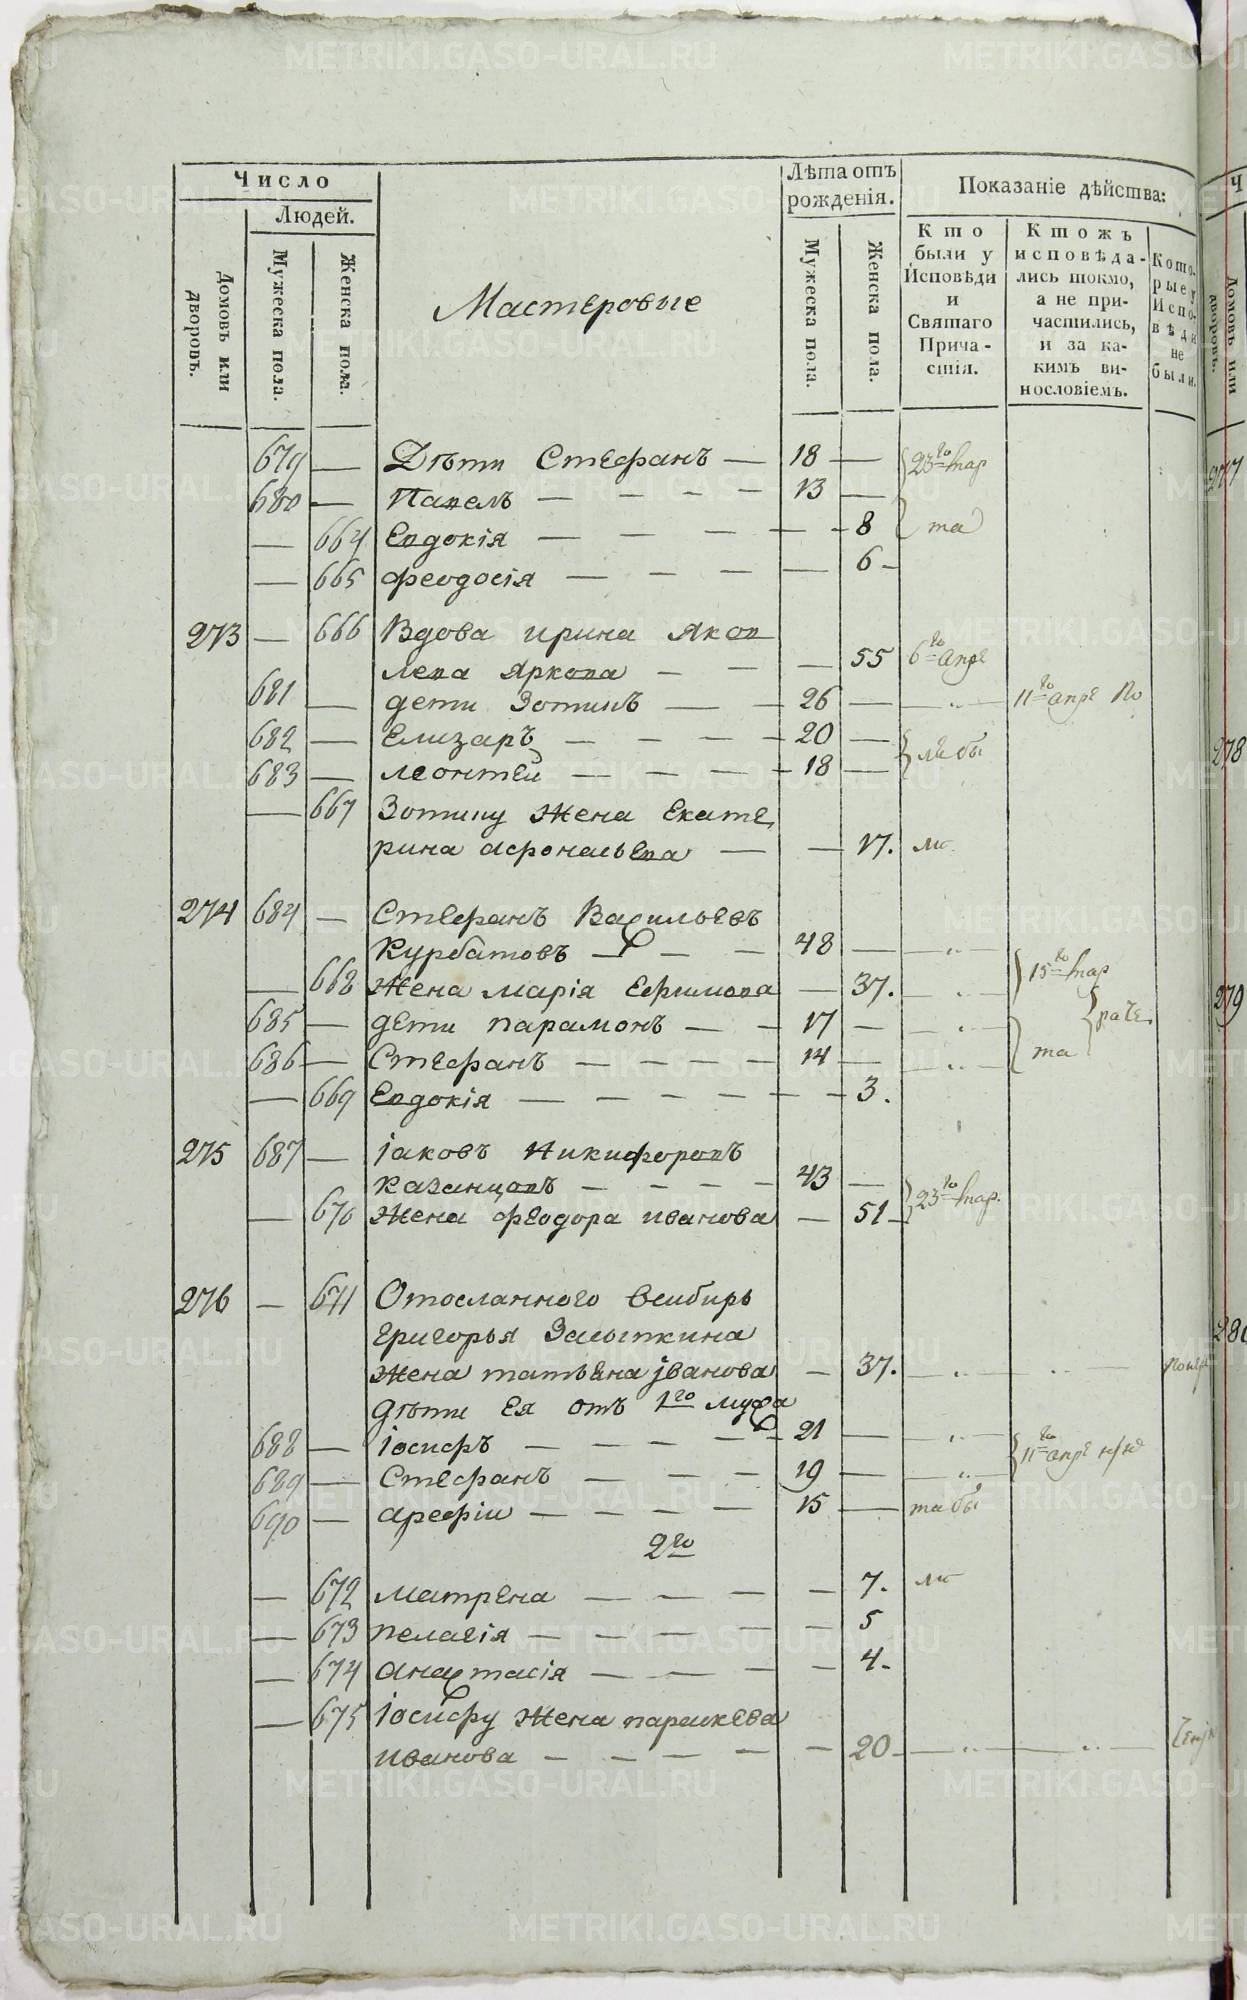 Число
Людей.
Домовъ или дворовъ.
Мужеска пола.
Женска пола.
Мастеровые
Лѣта отъ рожденія.
Мужеска пола.
Женска пола.
Показаніе дѣйства:
Кто были у Исповѣди и Святаго Причастія.
Ктожъ исповѣдались токмо, а не причастились, и за какимъ винословіемъ.
Которые у Исповѣди не были.
679 — Дѣти Стефанъ — 18 — 23го мар
680 — Павелъ — — — — 13 —
— 664 Евдокія — — — — — 8 та
— 665 Феодосія — — — — 6 —
273 — 666 Вдова Ирина Яков
лева Яркова — — — 55 6го апре
681 — дети Зотикъ — — 26 — — „ — 11го апре по
682 — Елизаръ — — — — 20 —
683 — Леонтей — — — — 18 — ля бы
— 667 Зотику Жена Екате
рина Афонасьева — — 17.
274 684 — Стефанъ Васильевъ
Курбатовъ — — — 48 — — „ —
— 668 Жена Марія Ефимова — 37. — „ — 15го мар
685 — дети Парамонъ — — 17 — — „ —
686 — Стефанъ — — — — 14 — — „ — та
— 669 Евдокія — — — — — — 3.
275 687 — Іаковъ Никифоровъ
Казанцовъ — — — — 43 —
— 670 Жена Феодора Иванова — 51 — 23го мар.
276 — 671 Отосланного Всибирь
Григорья Засыпкина
Жена Татьяна Іванова — 37. — „ — „ —
Дѣти Ея отъ 1го мужа
688 — Іосифъ — — — — — 21 — — „ — 11го апре
689 — Стефанъ — — — 19 — — „ —
690 — Арефіи — — — — 15 — та бы
2го
— 672 Матрена — — — — 7.
— 673 Пелагія — — — — — 5
— 674 Анастасія — — — — 4.
— 675 Іосифу Жена Параскева
Иванова — — — — — 20 — „ — „ —
277
278
279
METRIKI.GASO-URAL.RU